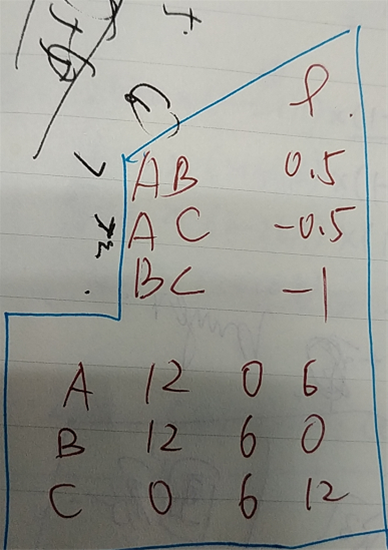 ρ
AB 0.5
AC -0.5
BC -1
A 12 0 6
B 12 6 0
C 0 6 12